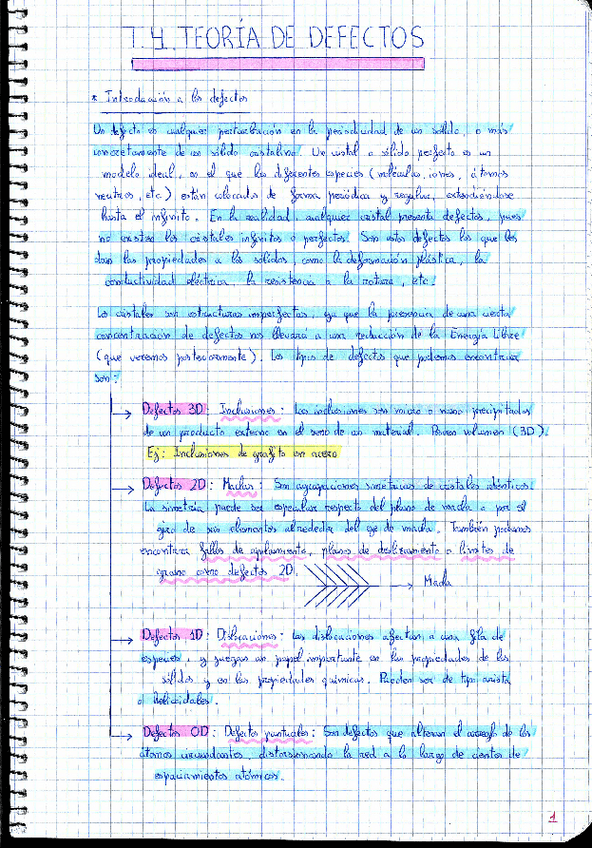 T.4. TEORÍA DE DEFECTOS
* Introducción a los defectos
Un defecto es cualquier perturbación en la periodicidad de un sólido, o más
concretamente de un sólido cristalino. Un cristal o sólido perfecto es un
modelo ideal, en el que las diferentes especies (moléculas, iones, átomos
neutros, etc.) están colocados de forma periódica y regular, extendiéndose
hasta el infinito. En la realidad, cualquier cristal presenta defectos, pues
no existen los cristales infinitos o perfectos. Son estos defectos los que les
dan las propiedades a los sólidos, como la deformación plástica, la
conductividad eléctrica, la resistencia a la rotura, etc.
Los cristales son estructuras imperfectas, ya que la presencia de una cierta
concentración de defectos nos llevará a una reducción de la Energía Libre
(que veremos posteriormente). Los tipos de defectos que podemos encontrar
son:
Defectos 3D: Inclusiones: Las inclusiones son micro o nano precipitados
de un producto externo en el seno de un material. Poseen volumen (3D).
Ej: Inclusiones de grafito en acero
Defectos 2D: Maclas: Son agrupaciones simétricas de cristales idénticos.
La simetría puede ser especular respecto del plano de macla o por el
giro de sus elementos alrededor del eje de macla. También podemos
encontrar fallos de apilamiento, planos de deslizamiento o límites de
grano como defectos 2D.
Macla
Defectos 1D: Dislocaciones: Las dislocaciones afectan a una fila de
especies, y juegan un papel importante en las propiedades de los
sólidos y en las propiedades químicas. Pueden ser de tipo arista
o helicoidales.
Defectos 0D: Defectos puntuales: Son defectos que alteran el arreglo de los
átomos circundantes, distorsionando la red a lo largo de cientos de
espaciamientos atómicos.
1